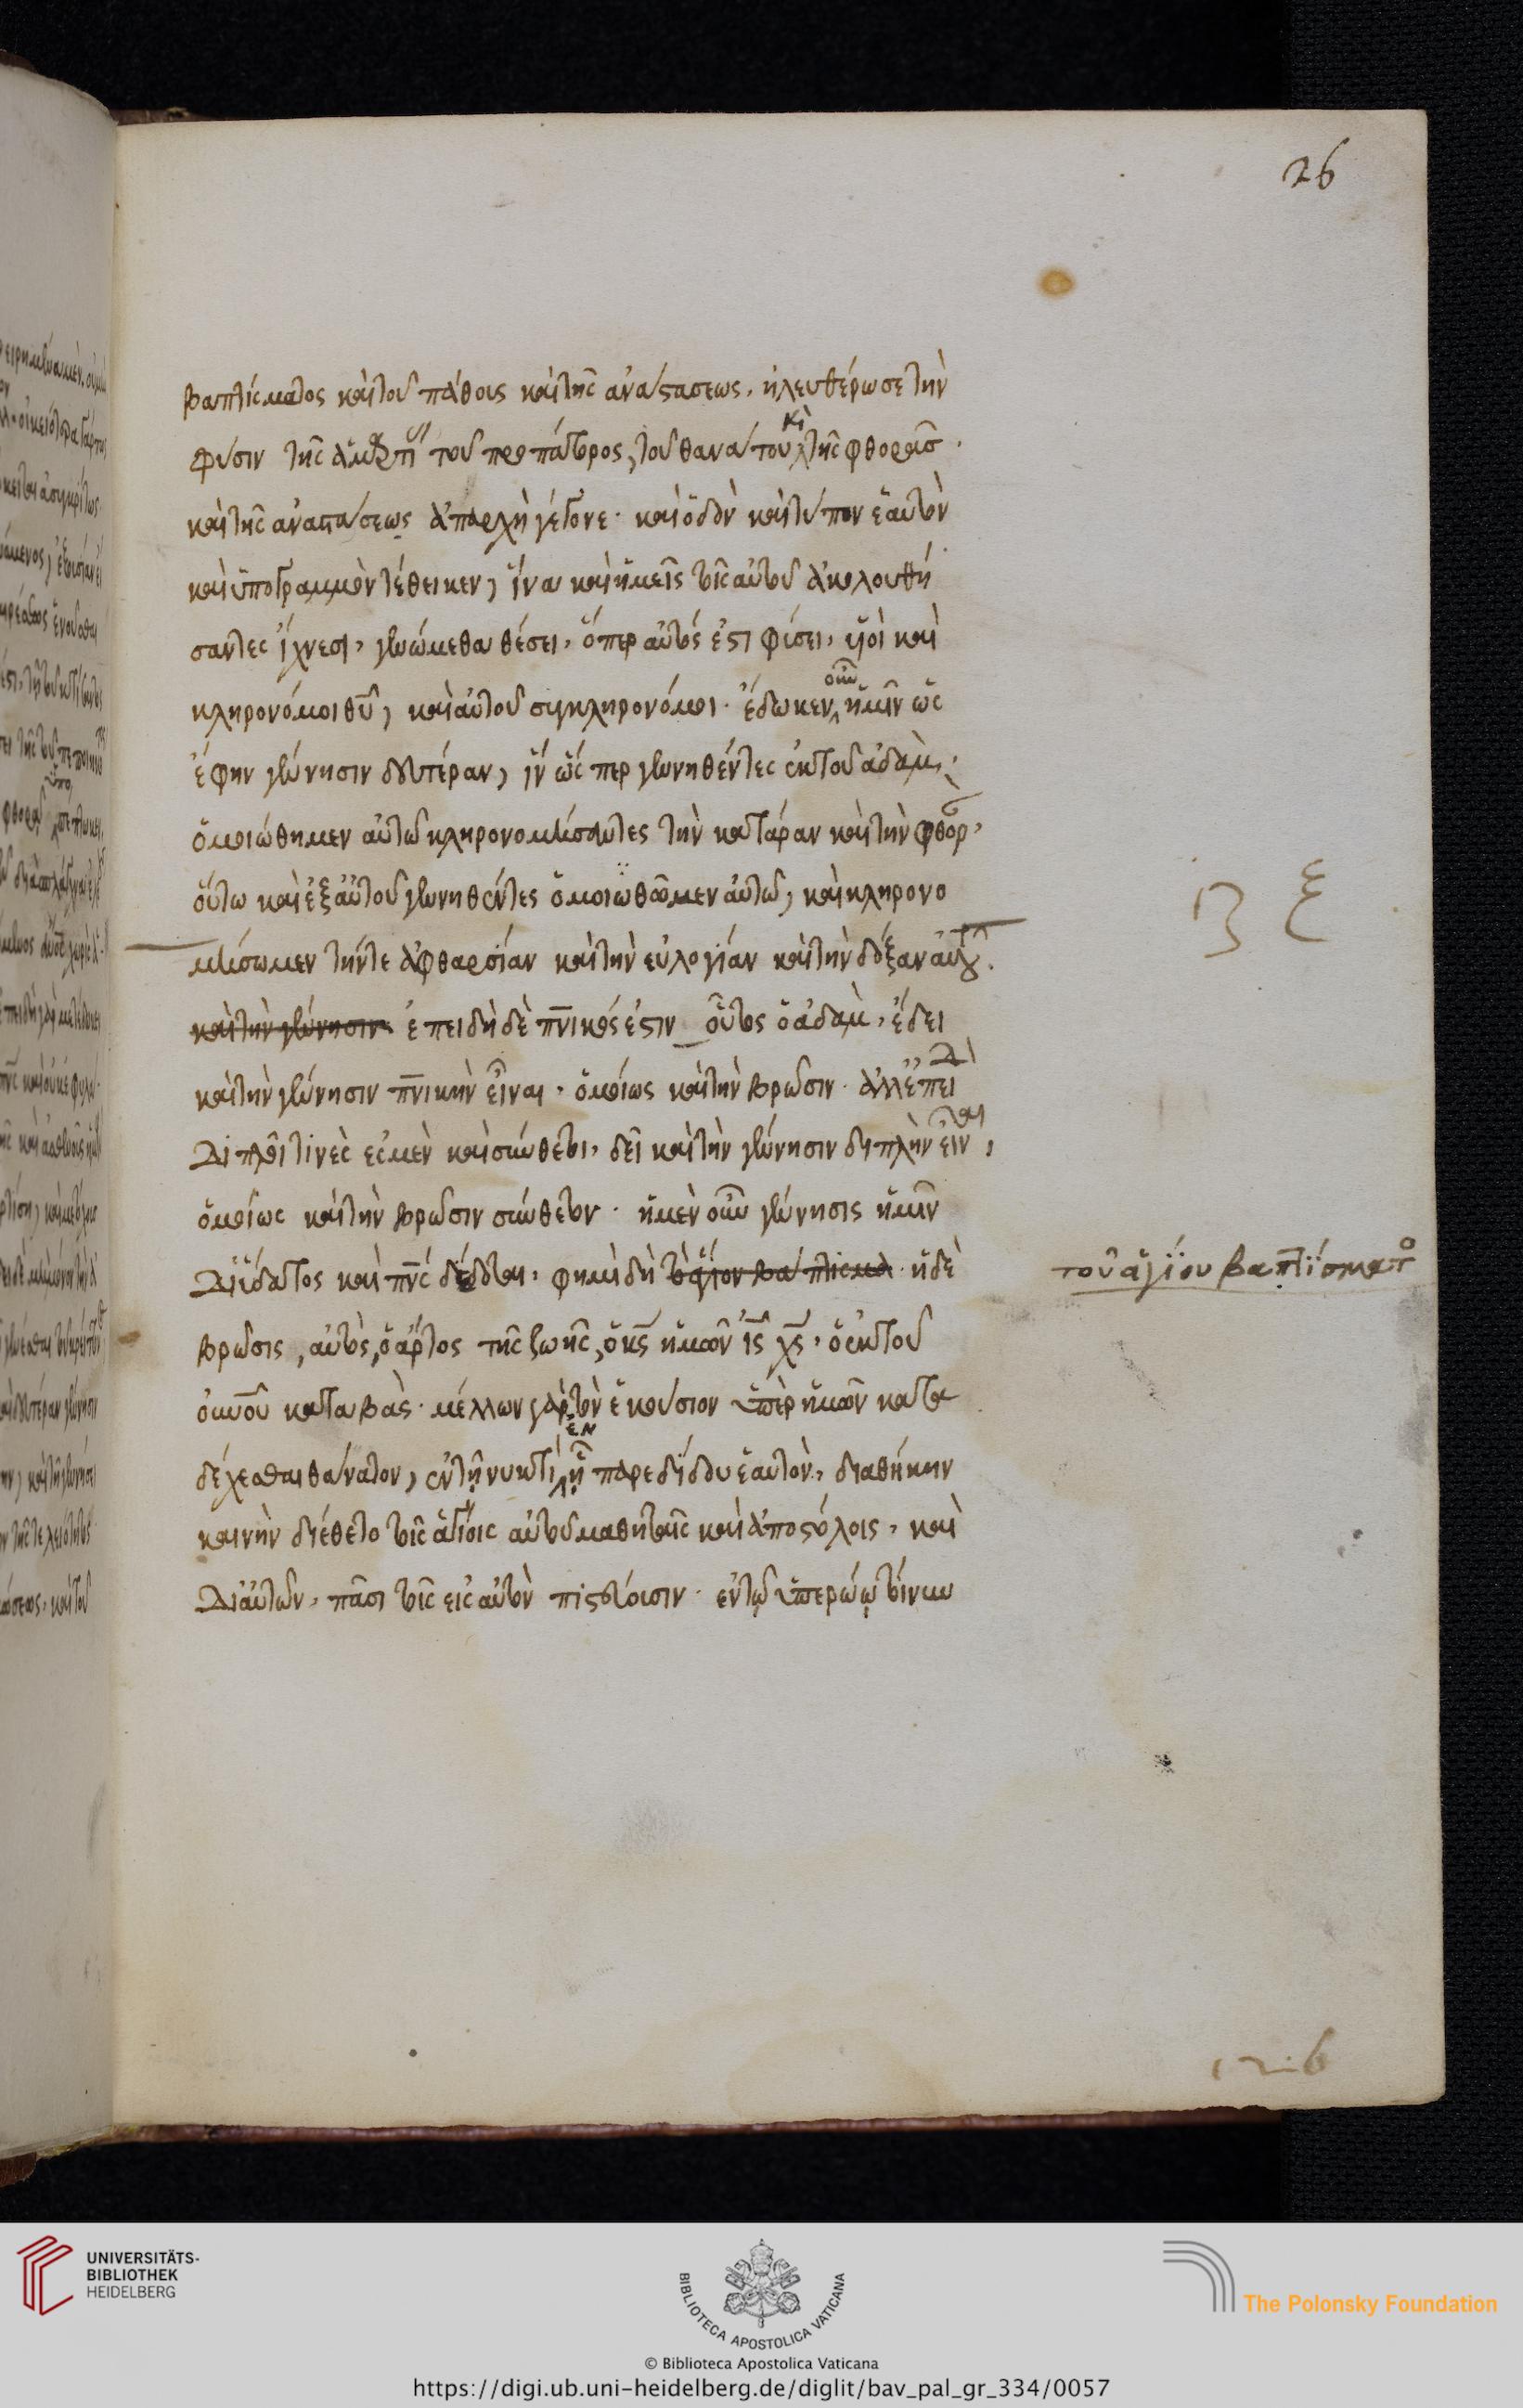 26
βαπτίσματος καὶ τοῦ πάθους καὶ τῆς ἀναστάσεως, ἠλευθέρωσε τὴν
φύσιν τῆς ἁμαρτί τοῦ προπάτορος, τοῦ θανάτου κὶ τῆς φθορᾶσ.
καὶ τῆς ἀναστάσεως ἀπαρχὴ γέγονε· καὶ ὁδὸν καὶ τύπον ἑαυτὸν
καὶ ὑπογραμμὸν τέθεικεν, ἵνα καὶ ἡμεῖς τοῖς αὐτοῦ ἀκολουθή
σαντες ἴχνεσι, γενώμεθα θέσει, ὅπερ αὐτός ἐστι φύσει, υἱοὶ καὶ
κληρονόμοι θῦ, καὶ αὐτοῦ συγκληρονόμοι. ἔδωκεν οὖν ἡμῖν ὡς
ἔφην γέννησιν δευτέραν, ἵν ὥσπερ γεννηθέντες ἐκ τοῦ ἀδὰμ,
ὁμοιώθημεν αὐτῶ κληρονομήσαντες τὴν κατάραν καὶ τὴν φθορ,
οὕτω καὶ ἐξ αὐτοῦ γεννηθέντες ὁμοιωθῶμεν αὐτῶ, καὶ κληρονο
μήσωμεν τήν τε ἀφθαρσίαν καὶ τὴν εὐλογίαν καὶ τὴν δόξαν αὐτοῦ.
καὶ τὴν γέννησιν ἐπειδὴ δὲ πνικός ἐστιν οὗτος ὁ ἀδὰμ, ἔδει
καὶ τὴν γέννησιν πνικὴν εἶναι, ὁμοίως καὶ τὴν βρῶσιν. ἀλλ ἐπειδὴ
διπλοῖ τινές ἐσμὲν καὶ σύνθετοι, δεῖ καὶ τὴν γέννησιν διπλὴν εἶναι,
ὁμοίως καὶ τὴν βρῶσιν σύνθετον. ἡ μὲν οὖν γέννησις ἡμῖν
δι ὕδατος καὶ πνς δέδοται, φημὶ δὴ τὸ ἅγιον βάπτισμα. ἡ δὲ
τοῦ ἁγίου βαπτίσματο
βρῶσις, αὐτὸς, ὁ ἄρτος τῆς ζωῆς, ὁ κς ἡμῶν ις χς, ὁ ἐκ τοῦ
οὐνοῦ καταβὰς. μέλλων γὰρ τὸν ἑκούσιον ὑπὲρ ἡμῶν κατα
δέχεσθαι θάνατον, ἐν τῇ νυκτὶ ἐν ᾗ παρεδίδου ἑαυτὸν, διαθήκην
καινὴν διέθετο τοῖς ἁγίοις αὐτοῦ μαθηταῖς καὶ ἀποστόλοις, καὶ
δι αὐτῶν, πᾶσι τοῖς εἰς αὐτὸν πιστεύουσιν. ἐν τῷ ὑπερώῳ τοίνυν
UNIVERSITÄTS-
BIBLIOTHEK
HEIDELBERG
BIBLIOTECA APOSTOLICA VATICANA
The Polonsky Foundation
© Biblioteca Apostolica Vaticana
https://digi.ub.uni-heidelberg.de/diglit/bav_pal_gr_334/0057